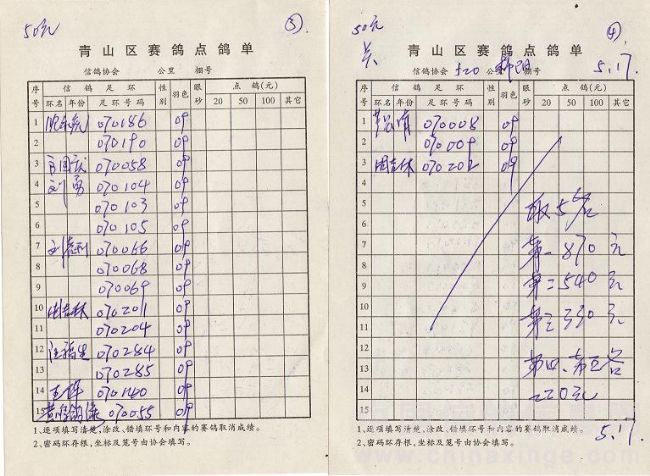 50元
③
青山区赛鸽点鸽单
信鸽协会 公里 棚号
序号 信鸽足环 性别 羽色 眼砂 点鸽(元)
环名 年份 足环号码 20 50 100 其它
1 070186 09
2 070190 09
3 070058 09
4 刘勇 070104 09
5 070103 09
6 070105 09
7 070066 09
8 070068 09
9 070069 09
10 070201 09
11 070204 09
12 070284 09
13 070285 09
14 070140 09
15 070055 09
1.逐项填写清楚,涂改、错填环号和内容的赛鸽取消成绩。
2.密码环存根,坐标及笼号由协会填写。
50元
④
青山区赛鸽点鸽单
信鸽协会 520 公里 棚号 5.17.
序号 信鸽足环 性别 羽色 眼砂 点鸽(元)
环名 年份 足环号码 20 50 100 其它
1 070008 09
2 070009 09
3 070202 09
4
5 取5名
6
7 第一870元
8
9 第二540元
10
11 第三330元
12
13 第四、第五名
14 220元
15
1.逐项填写清楚,涂改、错填环号和内容的赛鸽取消成绩。
2.密码环存根,坐标及笼号由协会填写。
5.17.
www.chinaxinge.com